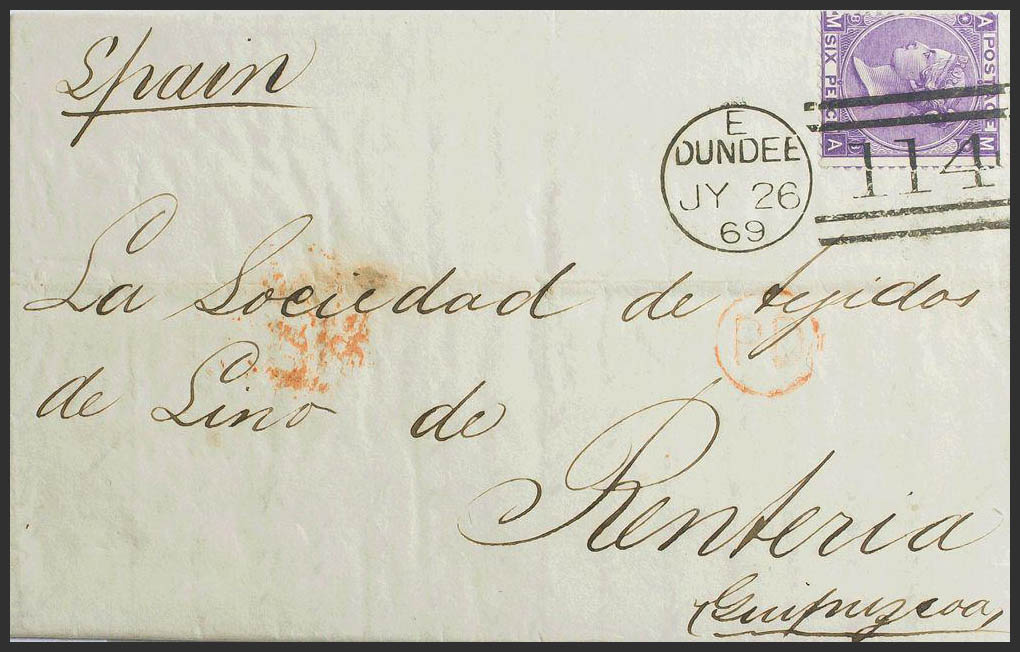 Spain
M SIX PENCE A
A POSTAGE M
E
DUNDEE
JY 26
69
114
La Sociedad de tejidos
PD
de Lino de
Renteria
(Guipuzcoa)